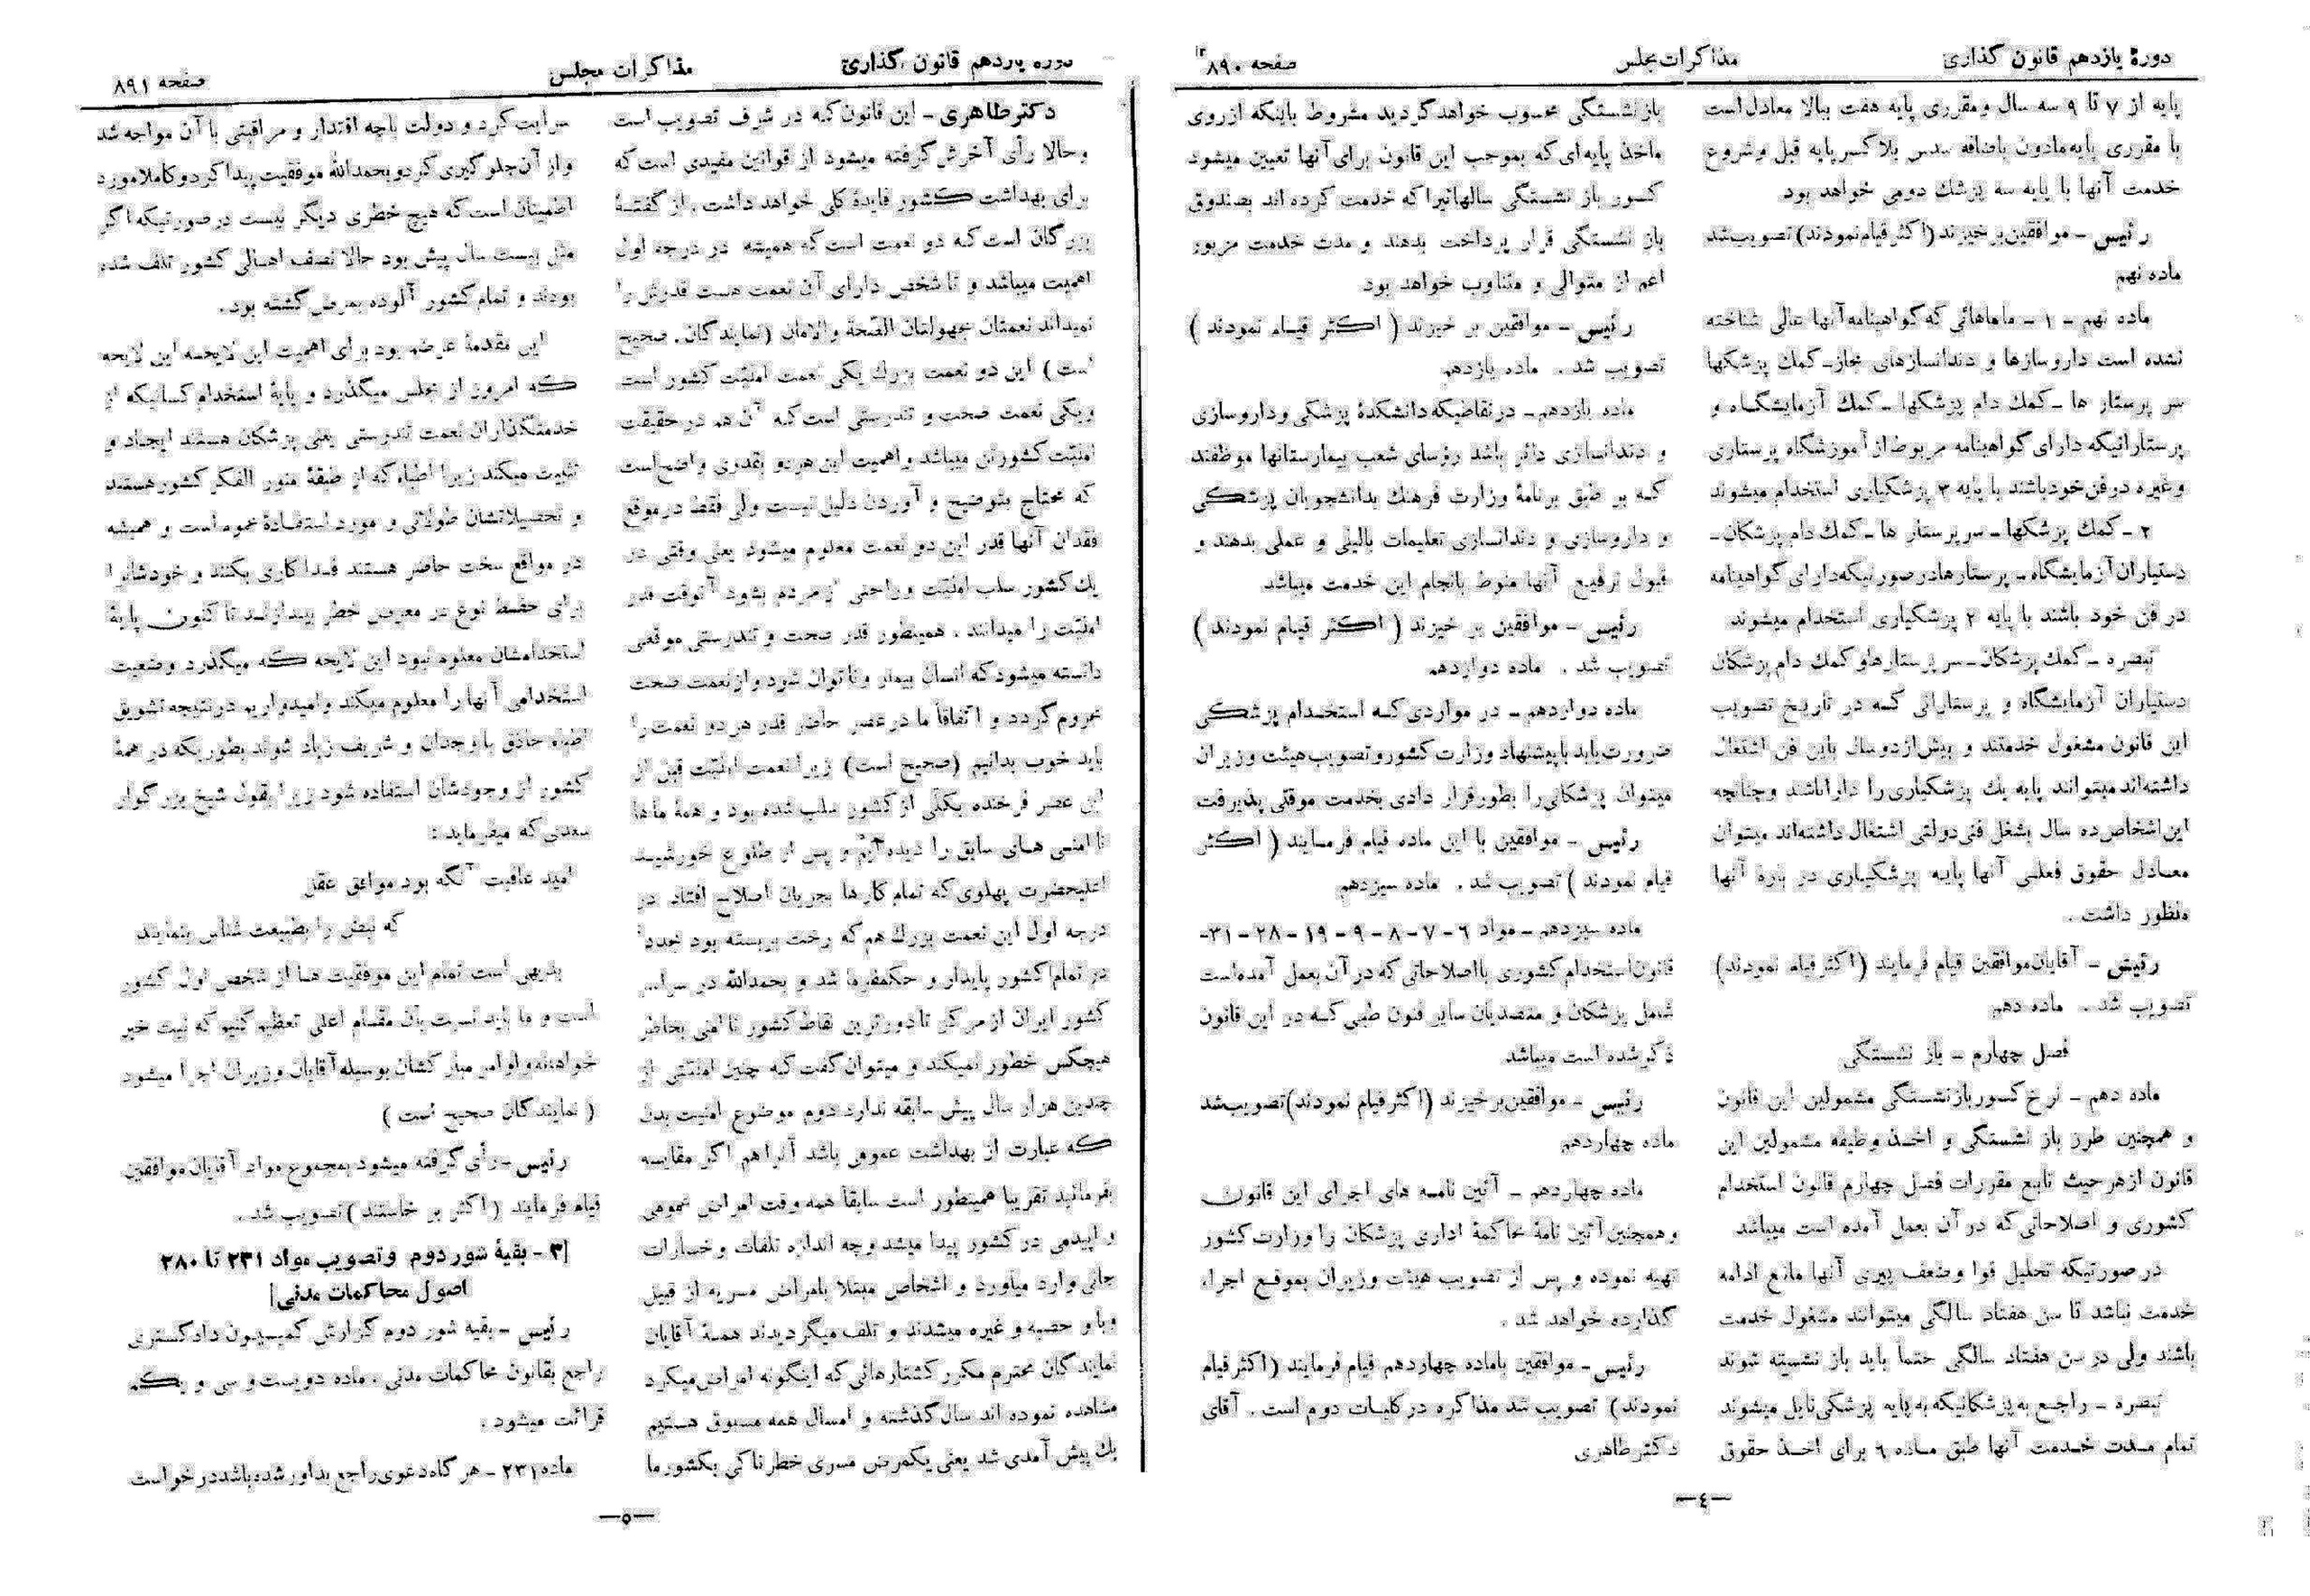 دورهٔ یازدهم قانون گذاری
مذاکرات مجلس
صفحه ۸۹۰
پایه از ۷ تا ۹ سه سال و مقرری پایه هفت ببالا معادل است
با مقرری پایه مادون باضافه سدس بلاکسر پایه قبل و شروع
خدمت آنها با پایه سه پزشك دومی خواهد بود
رئیس - موافقین برخیزند (اکثر قیام نمودند) تصویب شد
ماده نهم
ماده نهم - ۱ - ماماهائی که گواهینامه آنها عالی شناخته
نشده است داروسازها و دندانسازهای مجاز - کمك پزشکها
سر پرستار ها - کمك دام پزشکها - کمك آزمایشگاه و
پرستارانیکه دارای گواهینامه مربوط از آموزشگاه پرستاری
وغیره در فن خود باشند با پایه ۳ پزشکیاری استخدام میشوند
۲ - کمك پزشکها - سر پرستار ها - کمك دام پزشکان -
دستیاران آزمایشگاه - پرستارها در صورتیکه دارای گواهینامه
در فن خود باشند با پایه ۲ پزشکیاری استخدام میشوند
تبصره - کمك پزشکان - سر پرستارها و کمك دام پزشکان
دستیاران آزمایشگاه و پرستارانی کـه در تاریخ تصویب
این قانون مشغول خدمتند و بیش از دو سال باین فن اشتغال
داشته‌اند میتوانند پایه یك پزشکیاری را دارا باشند و چنانچه
این اشخاص ده سال بشغل فنی دولتی اشتغال داشته‌اند میتوان
معادل حقوق فعلی آنها پایه پزشکیاری در بارهٔ آنها
منظور داشت .
رئیس - آقایان موافقین قیام فرمایند (اکثر قیام نمودند)
تصویب شد . ماده دهم
فصل چهارم - باز نشستگی
ماده دهم - نرخ کسور بازنشستگی مشمولین این قانون
و همچنین طرز باز نشستگی و اخـذ وظیفه مشمولین این
قانون از هر حیث تابع مقررات فصل چهارم قانون استخدام
کشوری و اصلاحاتی که در آن بعمل آمده است میباشد
در صورتیکه تحلیل قوا و ضعف پیری آنها مانع ادامه
خدمت نباشد تا سن هفتاد سالگی میتوانند مشغول خدمت
باشند ولی در سن هفتاد سالگی حتماً باید باز نشسته شوند
تبصره - راجع به پزشکانیکه به پایه پزشکی نایل میشوند
تمام مـدت خـدمت آنها طبق مـاده ۶ برای اخـذ حقوق
باز نشستگی محسوب خواهد گردید مشروط باینکه از روی
مأخذ پایه‌ای که بموجب این قانون برای آنها تعیین میشود
کسور باز نشستگی سالهائیرا که خدمت کرده اند بصندوق
باز نشستگی قرار پرداخت بدهند و مدت خدمت مزبور
اعم از متوالی و متناوب خواهد بود
رئیس - موافقین بر خیزند ( اکثر قیـام نمودند )
تصویب شد . ماده یازدهم
ماده یازدهم - در نقاطیکه دانشکدهٔ پزشکی و داروسازی
و دندانسازی دائر باشد رؤسای شعب بیمارستانها موظفند
کـه بر طبق برنامهٔ وزارت فرهنك بدانشجویان پزشکی
و داروسازی و دندانسازی تعلیمات بالینی و عملی بدهند و
قبول ترفیع آنها منوط بانجام این خدمت میباشد
رئیس - موافقین بر خیزند ( اکثر قیـام نمودند )
تصویب شد . ماده دوازدهم
ماده دوازدهم - در مواردی کـه استخـدام پزشکی
ضرورت یابد با پیشنهاد وزارت کشور و تصویب هیئت وزیران
میتوان پزشکانی را بطور قرار دادی بخدمت موقتی پذیرفت
رئیس - موافقین با این ماده قیام فرمـایند ( اکثر
قیام نمودند ) تصویب شد . ماده سیزدهم
ماده سیزدهم - مواد ۶ - ۷ - ۸ - ۹ - ۱۹ - ۲۸ - ۳۱-
قانون استخدام کشوری با اصلاحاتی که در آن بعمل آمده است
شامل پزشکان و متصدیان سایر فنون طبی کـه در این قانون
ذکر شده است میباشد
رئیس - موافقین برخیزند (اکثر قیام نمودند) تصویب شد
ماده چهاردهم
ماده چهاردهم - آئین نامـه های اجرای این قانون
و همچنین آئین نامهٔ محاکمهٔ اداری پزشکان را وزارت کشور
تهیه نموده و پس از تصویب هیئت وزیران بموقـع اجراء
گذارده خواهد شد .
رئیس - موافقین باماده چهاردهم قیام فرمایند (اکثر قیام
نمودند) تصویب شد مذاکره در کلیـات دوم است . آقای
دکتر طاهری
-٤-
دوره یازدهم قانون گذاری
مذاکرات مجلس
صفحه ۸۹۱
دکتر طاهری - این قانون کـه در شرف تصویب است
و حالا رأی آخرش گرفته میشود از قوانین مفیدی است که
برای بهداشت کشور فایدهٔ کلی خواهد داشت . از گفتـهٔ
بزرگان است کـه دو نعمت است که همیشه در درجه اول
اهمیت میباشد و تا شخص دارای آن نعمت هست قدرش را
نمیداند نعمتان مجهولتان الصحة والامان (نمایندگان . صحیح
است) این دو نعمت بزرك یکی نعمت امنیت کشور است
و یکی نعمت صحت و تندرستی است کـه آن هم در حقیقت
امنیت کشور تن میباشد و اهمیت این هر دو بقدری واضح است
که محتاج بتوضیح و آوردن دلیل نیست ولی فقط در موقع
فقدان آنها قدر این دو نعمت معلوم میشود یعنی وقتی در
یك کشور سلب امنیت و راحتی از مردم بشود آنوقت قدر
امنیت را میدانند . همینطور قدر صحت و تندرستی موقعی
دانسته میشود که انسان بیمار و ناتوان شود و از نعمت صحت
محروم گردد و اتفاقاً ما در عصر حاضر قدر هر دو نعمت را
باید خوب بدانیم (صحیح است) زیرا نعمت امنیت قبل از
این عصر فرخنده بکلی از کشور سلب شده بود و همهٔ ماها
نا امنـی هـای سابق را دیده‌ایم و پس از طلوع خورشیـد
اعلیحضرت پهلوی که تمام کارها بجریان اصلاح افتاد در
درجه اول این نعمت بزرك هم که رخت بربسته بود مجدداً
در تمام کشور پایدار و حکمفرما شد و بحمدالله در سراسر
کشور ایران از مرکز تا دورترین نقاط کشور ناامنی بخاطر
هیچکس خطور نمیکند و میتوان گفت کـه چنین امنیتی از
چندین هزار سال پیش سابقه ندارد دوم موضوع امنیت بدن
که عبارت از بهداشت عمومی باشد آنرا هم اگر مقایسه
بفرمائید تقریبا همینطور است سابقا همه وقت امراض عمومی
و اپیدمی در کشور پیدا میشد و چه اندازه تلفات و خسارات
جانی وارد میآورد و اشخاص مبتلا بامراض مسریه از قبیل
وبا و حصبه و غیره میشدند و تلف میگردیدند همـهٔ آقایان
نمایندگان محترم مکرر کشتارهائی که اینگونه امراض میکرد
مشاهده نموده اند سال گذشته و امسال همه مسبوق هستیم
یك پیش آمدی شد یعنی یکمرض مسری خطرناکی بکشور ما
سرایت کرد و دولت باچه اقتدار و مراقبتی با آن مواجه شد
و از آن جلوگیری کرد و بحمدالله موفقیت پیدا کرد و کاملا مورد
اطمینان است که هیچ خطری دیگر نیست در صورتیکه اگر
مثل بیست سال پیش بود حالا نصف اهـالی کشور تلف شده
بودند و تمام کشور آلوده بمرض گشته بود .
این مقدمهٔ عرضم بود برای اهمیت این لایحـه این لایحه
که امروز از مجلس میگذرد و پایهٔ استخدام کسانیکه از
خدمتگذاران نعمت تندرستی یعنی پزشکان هستند ایجـاد و
تثبیت میکند زیرا اطباء که از طبقهٔ منور الفکر کشور هستند
و تحصیلاتشان طولانی و مورد استفـادهٔ عموم است و همیشه
در مواقع سخت حاضر هستند فـداکاری بکنند و خودشانرا
برای حفـظ نوع در معرض خطر بیندازنـد تا کنون پایهٔ
استخدامشان معلوم نبود این لایحه که میگذرد وضعیت
استخدامی آنها را معلوم میکند و امیدواریم در نتیجه تشویق
اطباء حاذق با وجدان و شریف زیاد شوند بطوریکه در همهٔ
کشور از وجودشان استفاده شود زیرا بقول شیخ بزرگوار
سعدی که میفرماید :
امید عافیت آنگه بود موافق عقل
که نبض را بطبیعت شناس بنمایند
بدیهی است تمام این موفقیت هـا از شخص اول کشور
است و ما باید نسبت بآن مقـام اعلی تعظیم کنیم که نیت خیر
خواهانه و اوامر مبارکشان بوسیله آقایان وزیران اجرا میشود
( نمایندگان صحیح است )
رئیس - رأی گرفته میشود بمجموع مواد آقایان موافقین
قیام فرمایند (اکثر بر خاستند) تصویب شد .
[۳ - بقیهٔ شور دوم و تصویب مواد ۲۳۱ تا ۲۸۰
اصول محاکمات مدنی]
رئیس - بقیه شور دوم گزارش کمیسیون دادگستری
راجع بقانون محاکمات مدنی . ماده دویست و سی و یکم
قرائت میشود .
ماده ۲۳۱ - هر گاه دعوی راجع بداور شده باشد درخواست
-٥-